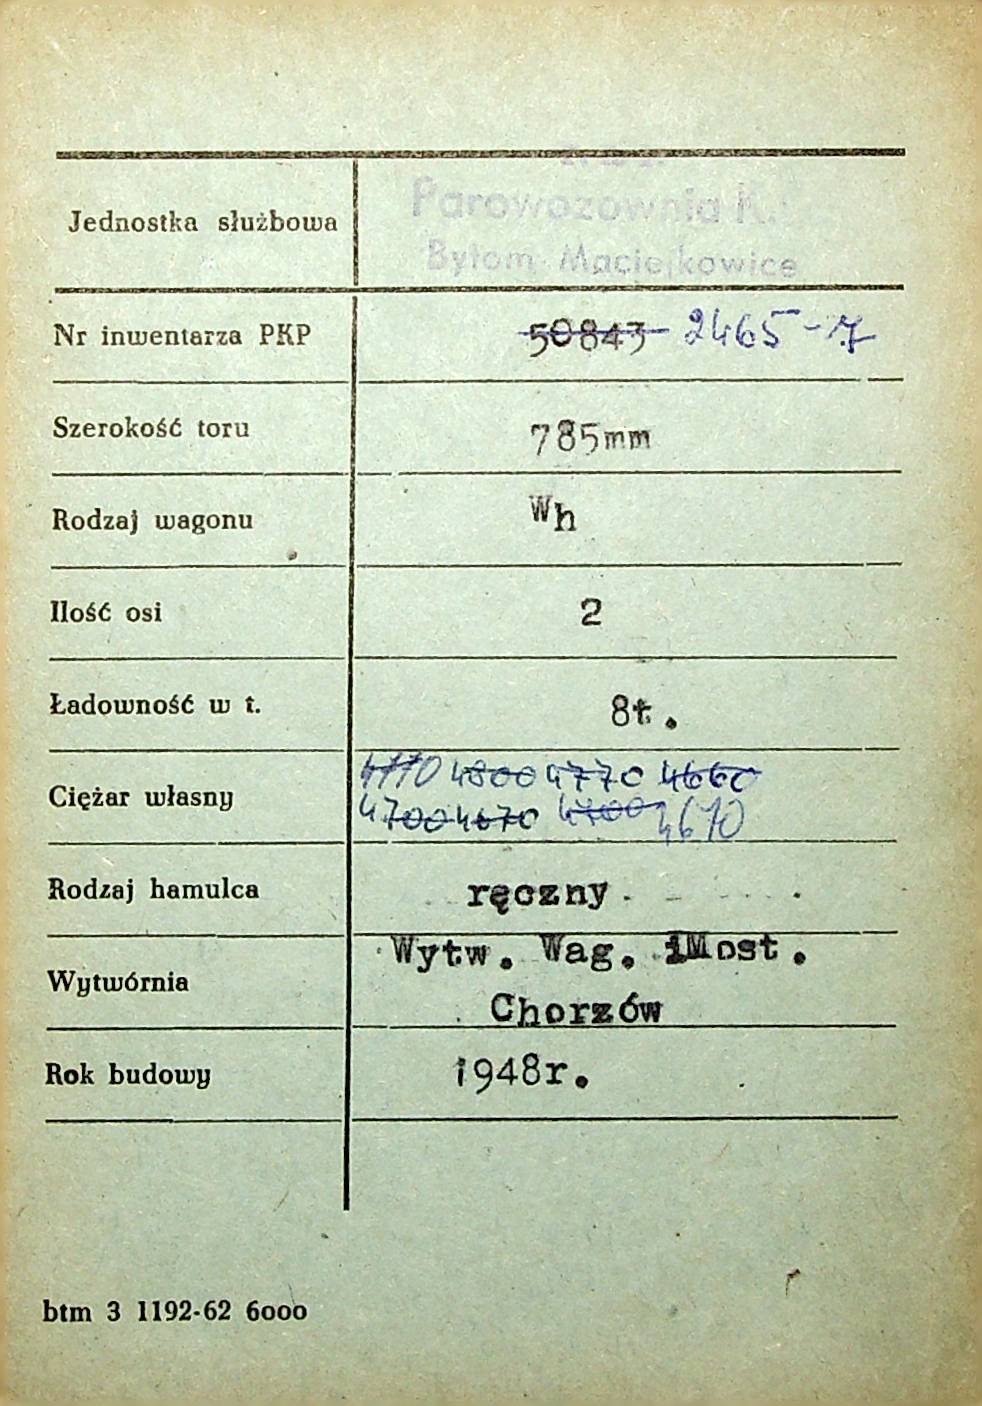 Jednostka służbowa
Parowozownia K.
Bytom Maciejkowice
Nr inwentarza PKP 50843 2465-7
Szerokość toru 785mm
Rodzaj wagonu Wh
Ilość osi 2
Ładowność w t. 8t.
Ciężar własny 4770 4800 4770 4660
4700 4670 4700 4670
Rodzaj hamulca ręczny
Wytwórnia Wytw. Wag. iMost.
Chorzów
Rok budowy 1948r.
btm 3 1192-62 6000